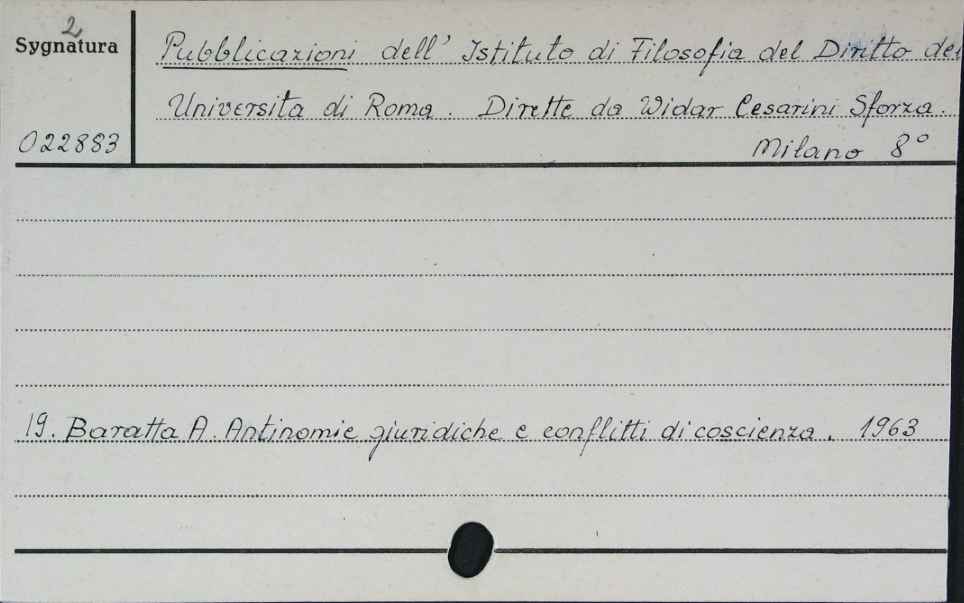 2
Sygnatura
022883
Pubblicazioni dell' Istituto di Filosofia del Diritto del
Universita di Roma. Dirette da Widar Cesarini Sforza.
Milano 8°
19. Baratta A. Antinomie giuridiche e conflitti di coscienza. 1963